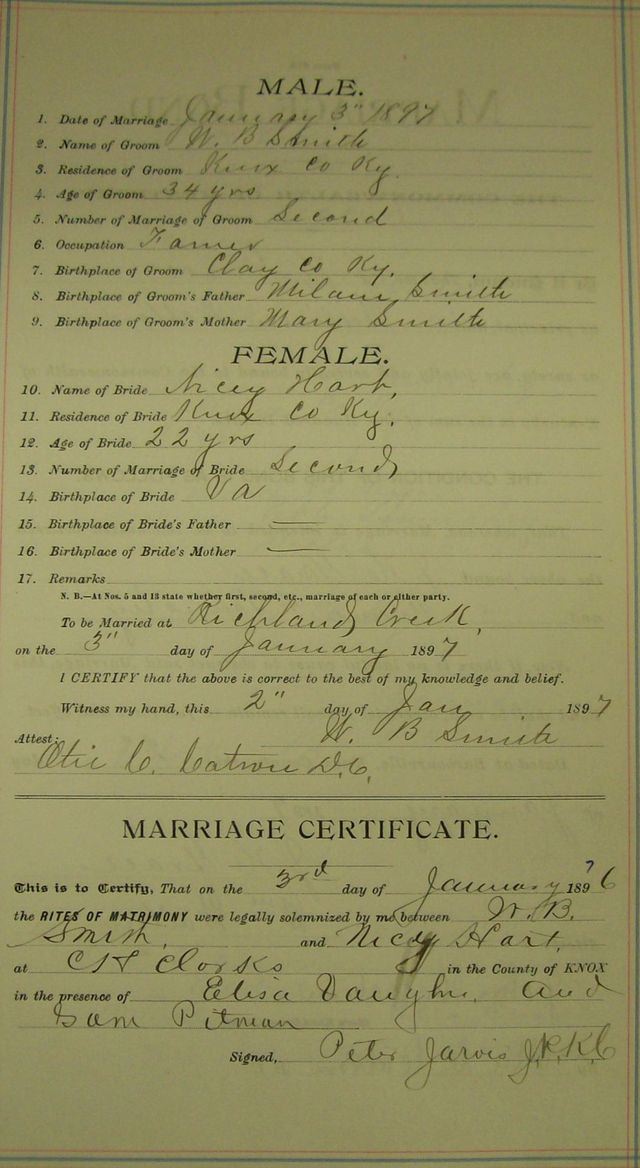 MALE.
1. Date of Marriage January 3" 1897
2. Name of Groom W. B Smith
3. Residence of Groom Knox Co Ky.
4. Age of Groom 34 yrs
5. Number of Marriage of Groom Second
6. Occupation Famer
7. Birthplace of Groom Clay Co Ky.
8. Birthplace of Groom's Father Milam Smith
9. Birthplace of Groom's Mother Mary Smith
FEMALE.
10. Name of Bride Nicey Hart,
11. Residence of Bride Knox Co Ky.
12. Age of Bride 22 yrs
13. Number of Marriage of Bride Second
14. Birthplace of Bride Va
15. Birthplace of Bride's Father —
16. Birthplace of Bride's Mother —
17. Remarks
N. B.—At Nos. 5 and 13 state whether first, second, etc., marriage of each or either party.
To be Married at Richland Creek,
on the 3" day of January 1897
I CERTIFY that the above is correct to the best of my knowledge and belief.
Witness my hand, this 2" day of Jan 1897
W. B Smith
Attest:
Otic C. Catron D.C.
MARRIAGE CERTIFICATE.
?
This is to Certify, That on the 3rd day of January 1896
the RITES OF MATRIMONY were legally solemnized by me between W. B.
Smith, and Nicey Hart,
at C H Clorks in the County of KNOX
in the presence of Elisa Vaughn, and
Sam Pitman
Signed, Peter Jarvis J.P.K.C